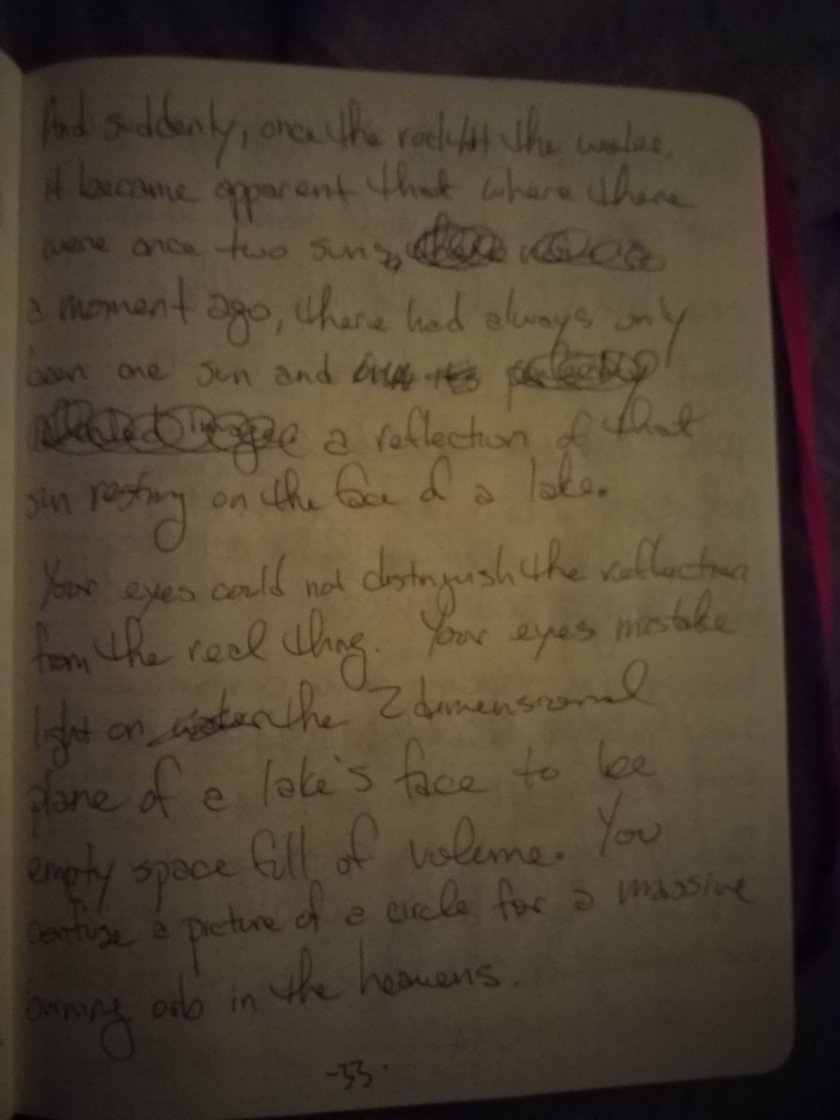 And suddenly, once the rock hit the water,
it became apparent that where there
were once two suns,
a moment ago, there had always only
been one sun and
a reflection of that
sun resting on the face of a lake.
Your eyes could not distinguish the reflection
from the real thing. Your eyes mistake
light on the 2 dimensional
plane of a lake's face to be
empty space full of volume. You
confuse a picture of a circle for a massive
burning orb in the heavens.
-33-